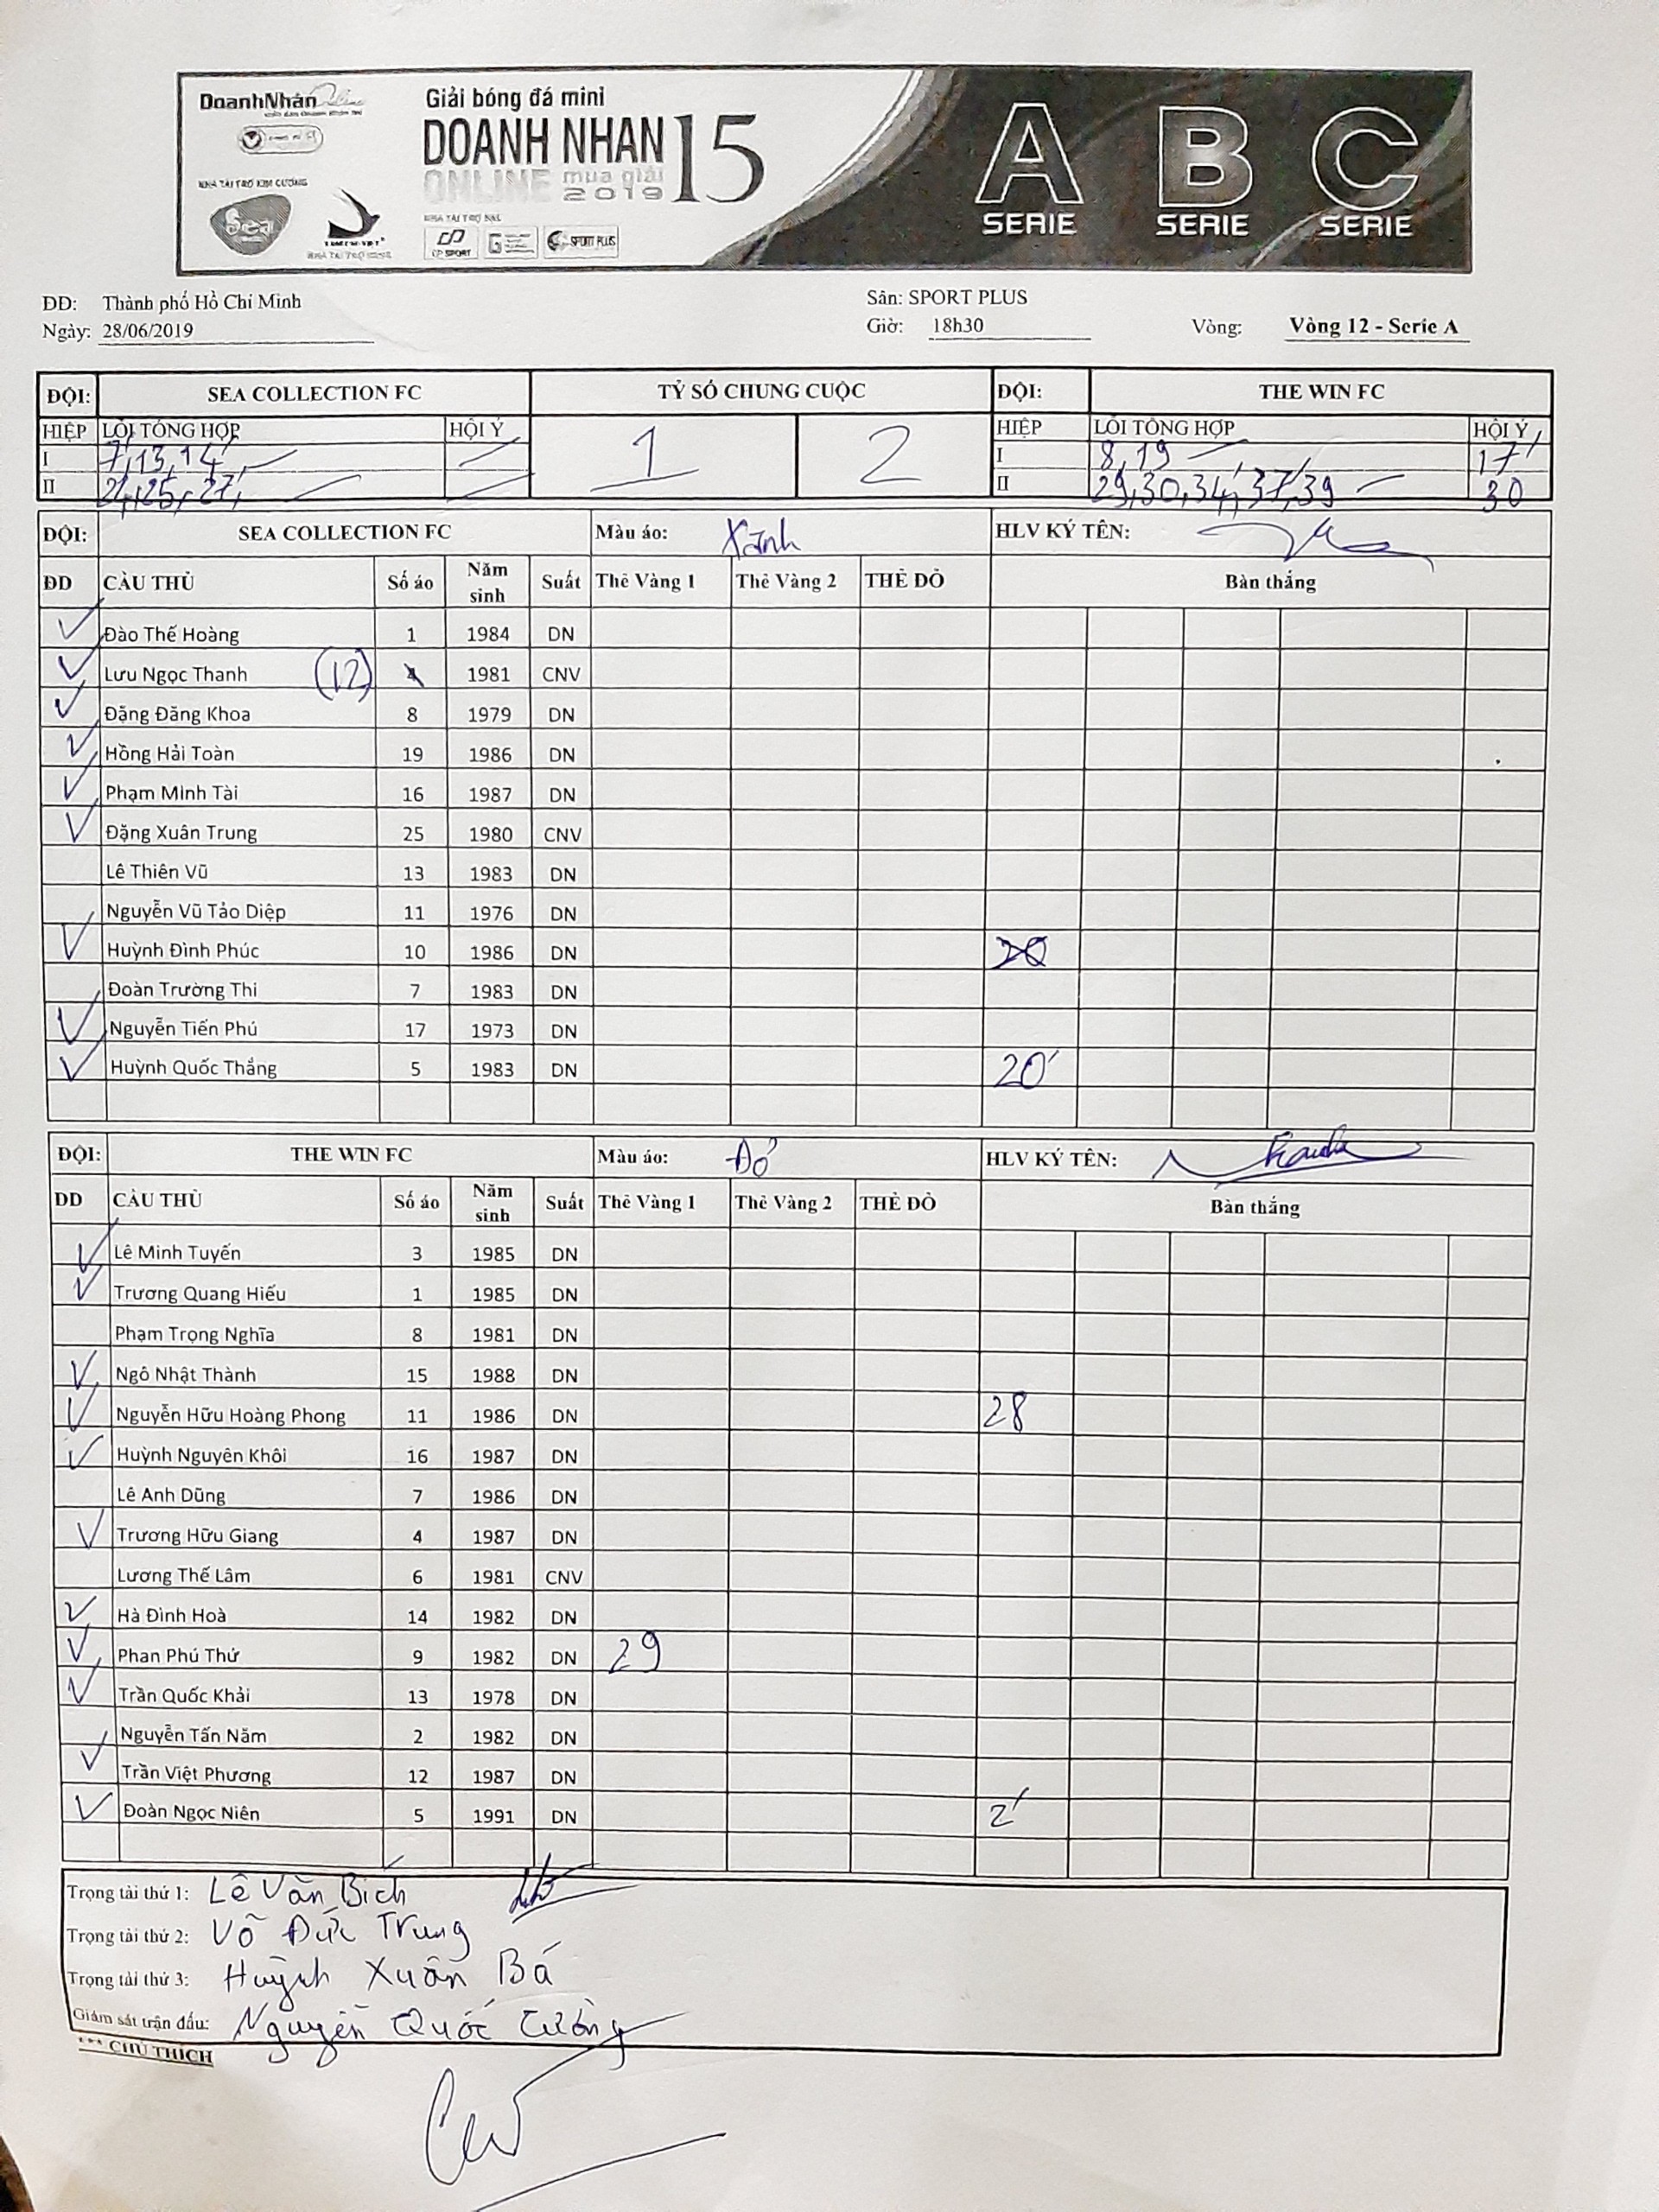 DoanhNhân Online
Giải bóng đá mini
DOANH NHAN 15
ONLINE mùa giải
2019
NHÀ TÀI TRỢ KIM CƯƠNG
Sea
CP SPORT
SPORT PLUS
A B C
SERIE SERIE SERIE
ĐĐ: Thành phố Hồ Chí Minh Sân: SPORT PLUS
Ngày: 28/06/2019 Giờ: 18h30 Vòng: Vòng 12 - Serie A
ĐỘI: SEA COLLECTION FC TỶ SỐ CHUNG CUỘC ĐỘI: THE WIN FC
HIỆP LỖI TỔNG HỢP HỘI Ý 1 2 HIỆP LỖI TỔNG HỢP HỘI Ý
I 7, 13, 14' I 8, 19 17'
II 24, 25, 27, II 29, 30, 34, 37, 39 30
ĐỘI: SEA COLLECTION FC Màu áo: Xanh HLV KÝ TÊN:
ĐD CẦU THỦ Số áo Năm sinh Suất Thẻ Vàng 1 Thẻ Vàng 2 THẺ ĐỎ Bàn thắng
Đào Thế Hoàng 1 1984 DN
Lưu Ngọc Thanh (12) 4 1981 CNV
Đặng Đăng Khoa 8 1979 DN
Hồng Hải Toàn 19 1986 DN
Phạm Minh Tài 16 1987 DN
Đặng Xuân Trung 25 1980 CNV
Lê Thiên Vũ 13 1983 DN
Nguyễn Vũ Tảo Diệp 11 1976 DN
Huỳnh Đình Phúc 10 1986 DN 20
Đoàn Trường Thi 7 1983 DN
Nguyễn Tiến Phú 17 1973 DN
Huỳnh Quốc Thắng 5 1983 DN 20'
ĐỘI: THE WIN FC Màu áo: Đỏ HLV KÝ TÊN:
DD CẦU THỦ Số áo Năm sinh Suất Thẻ Vàng 1 Thẻ Vàng 2 THẺ ĐỎ Bàn thắng
Lê Minh Tuyến 3 1985 DN
Trương Quang Hiếu 1 1985 DN
Phạm Trọng Nghĩa 8 1981 DN
Ngô Nhật Thành 15 1988 DN
Nguyễn Hữu Hoàng Phong 11 1986 DN 28
Huỳnh Nguyên Khôi 16 1987 DN
Lê Anh Dũng 7 1986 DN
Trương Hữu Giang 4 1987 DN
Lương Thế Lâm 6 1981 CNV
Hà Đình Hoà 14 1982 DN
Phan Phú Thứ 9 1982 DN 29
Trần Quốc Khải 13 1978 DN
Nguyễn Tấn Năm 2 1982 DN
Trần Việt Phương 12 1987 DN
Đoàn Ngọc Niên 5 1991 DN 2'
Trọng tài thứ 1: Lê Văn Bích
Trọng tài thứ 2: Võ Đức Trung
Trọng tài thứ 3: Huỳnh Xuân Bá
Giám sát trận đấu: Nguyễn Quốc Cường
*** CHÚ THÍCH